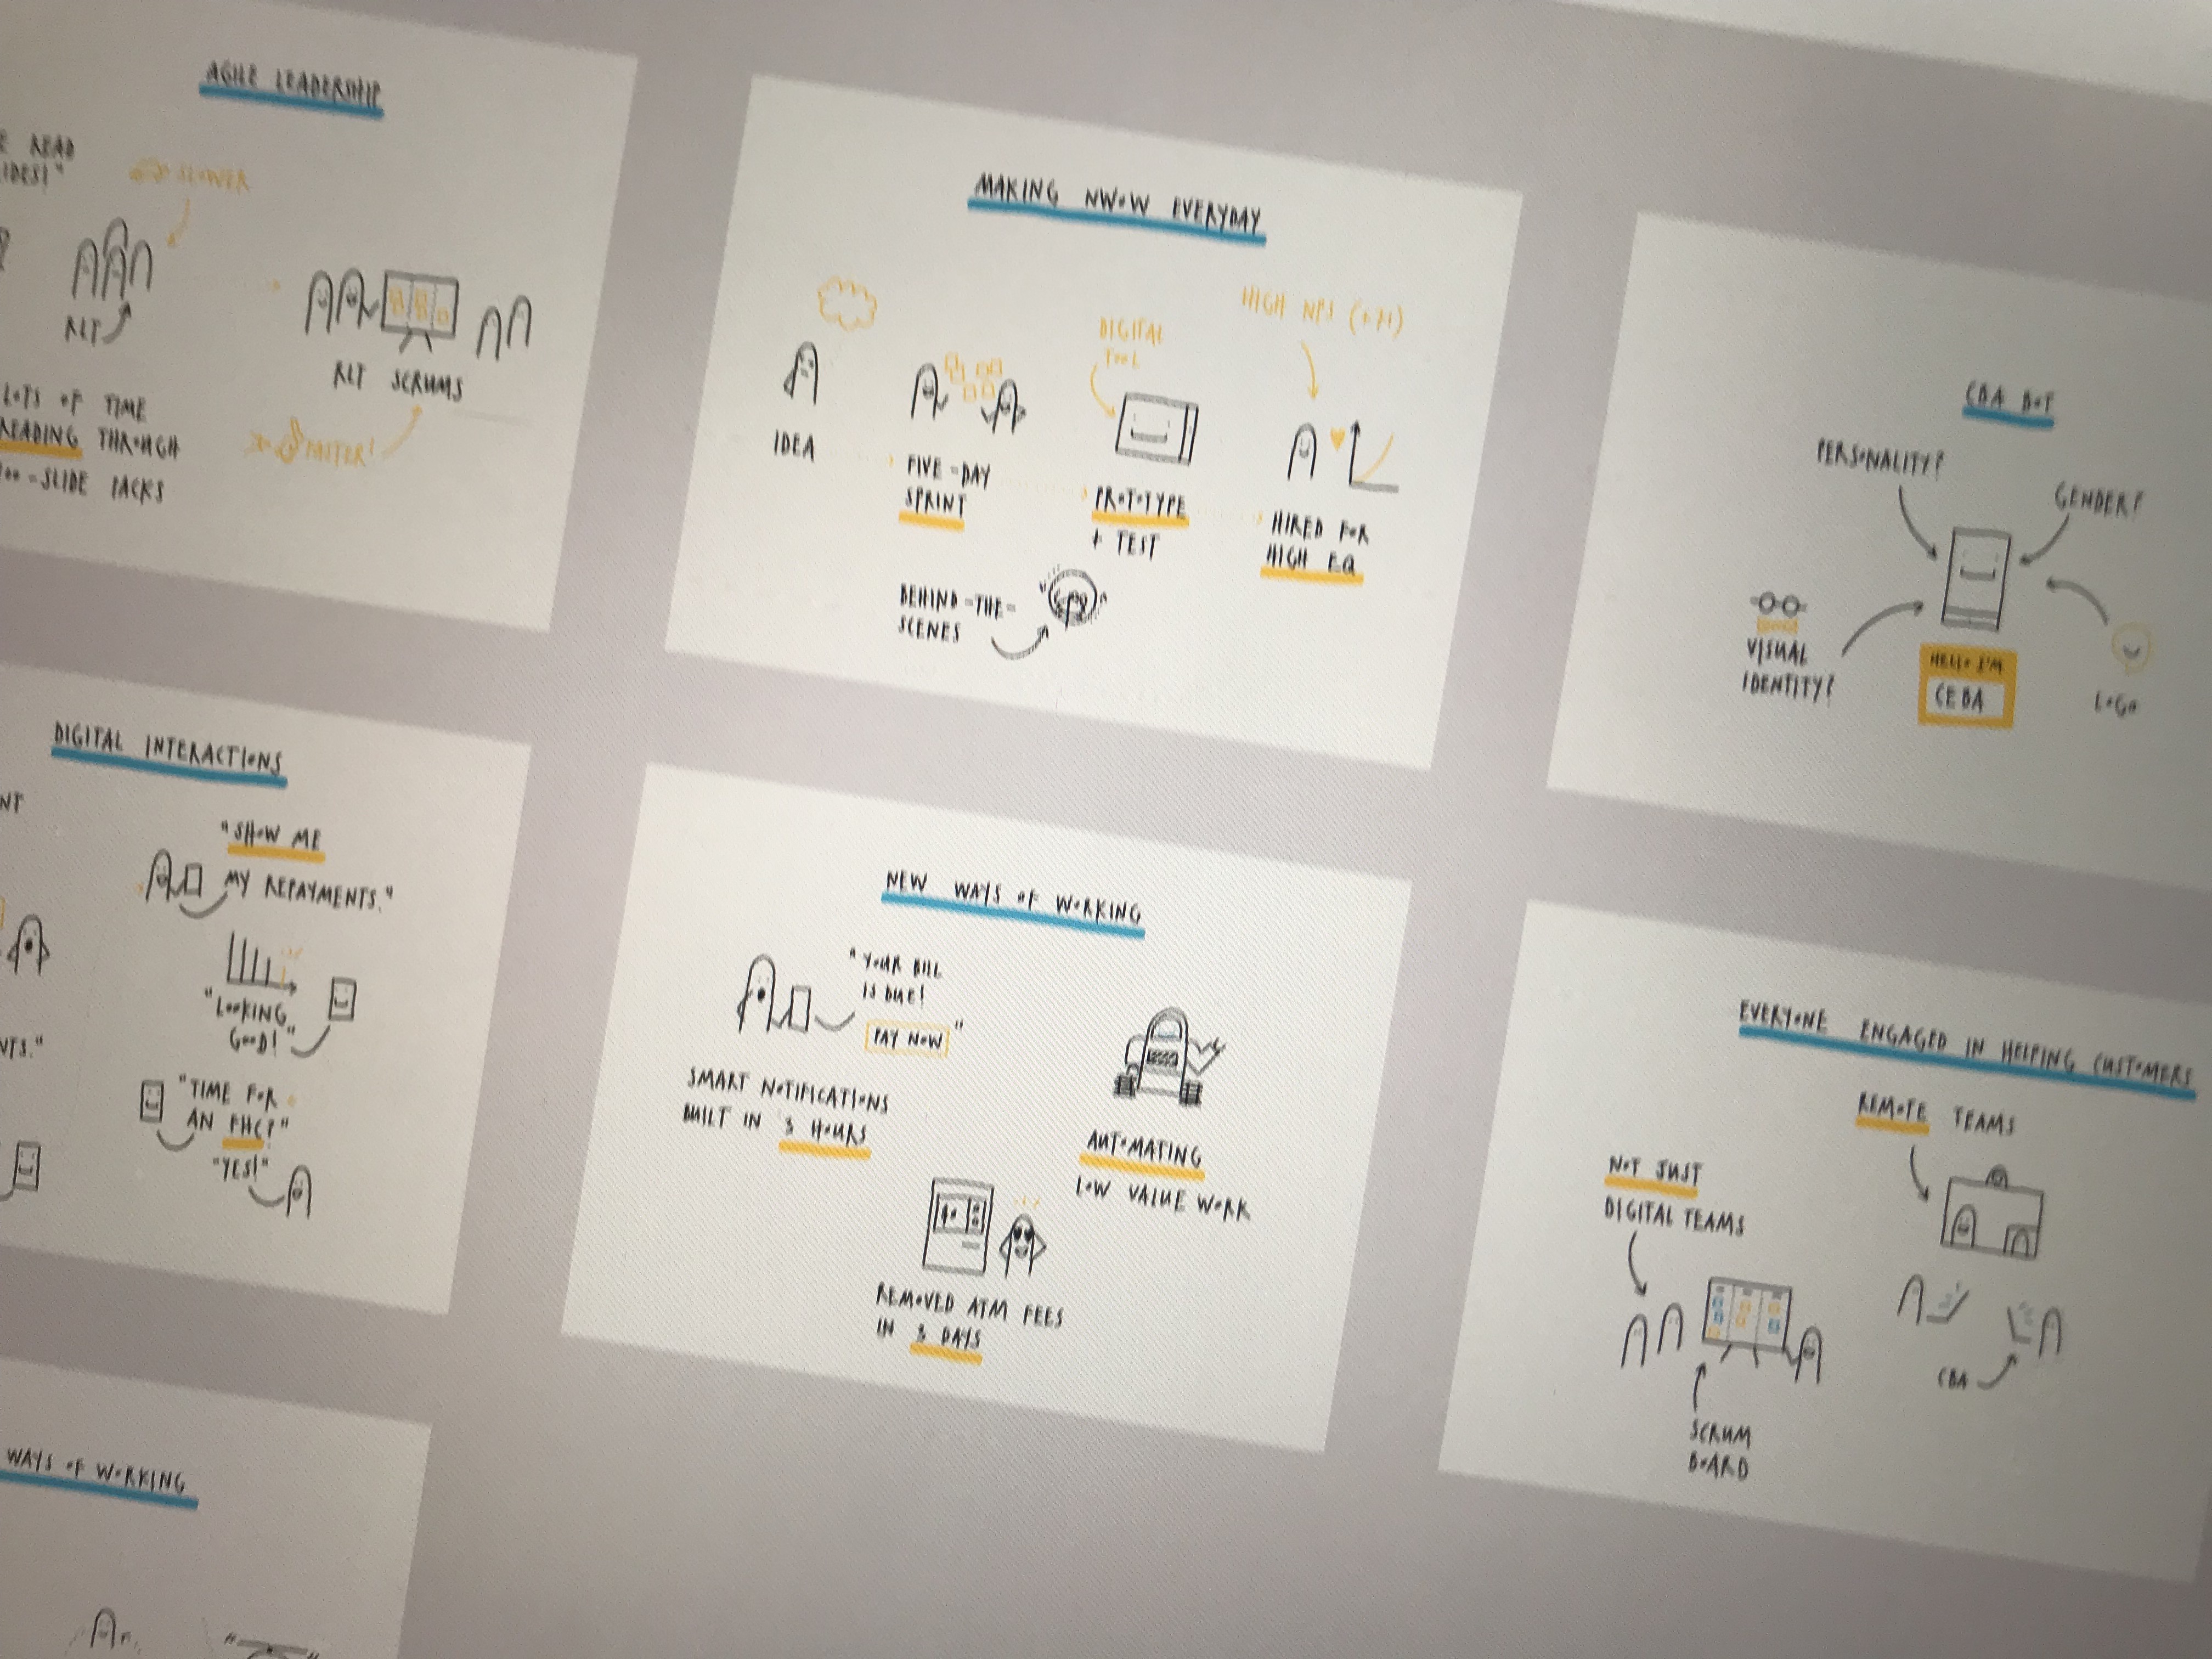 AGILE LEADERSHIP
READ
SLOWER
RLT
RLT SCRUMS
LOTS OF TIME
READING THROUGH
-SLIDE PACKS
FASTER!
MAKING NWOW EVERYDAY
IDEA
FIVE-DAY
SPRINT
DIGITAL
TOOL
PROTOTYPE
+ TEST
HIGH NPS (+71)
HIRED FOR
HIGH EQ
BEHIND-THE-
SCENES
CBA BOT
PERSONALITY?
GENDER?
VISUAL
IDENTITY?
HELLO I'M
CEBA
LOGO
DIGITAL INTERACTIONS
"SHOW ME
MY REPAYMENTS."
"LOOKING
GOOD!"
"TIME FOR
AN FHC?"
"YES!"
NEW WAYS OF WORKING
"YOUR BILL
IS DUE!
PAY NOW"
SMART NOTIFICATIONS
BUILT IN 3 HOURS
AUTOMATING
LOW VALUE WORK
REMOVED ATM FEES
IN 3 DAYS
EVERYONE ENGAGED IN HELPING CUSTOMERS
REMOTE TEAMS
NOT JUST
DIGITAL TEAMS
SCRUM
BOARD
CBA
WAYS OF WORKING